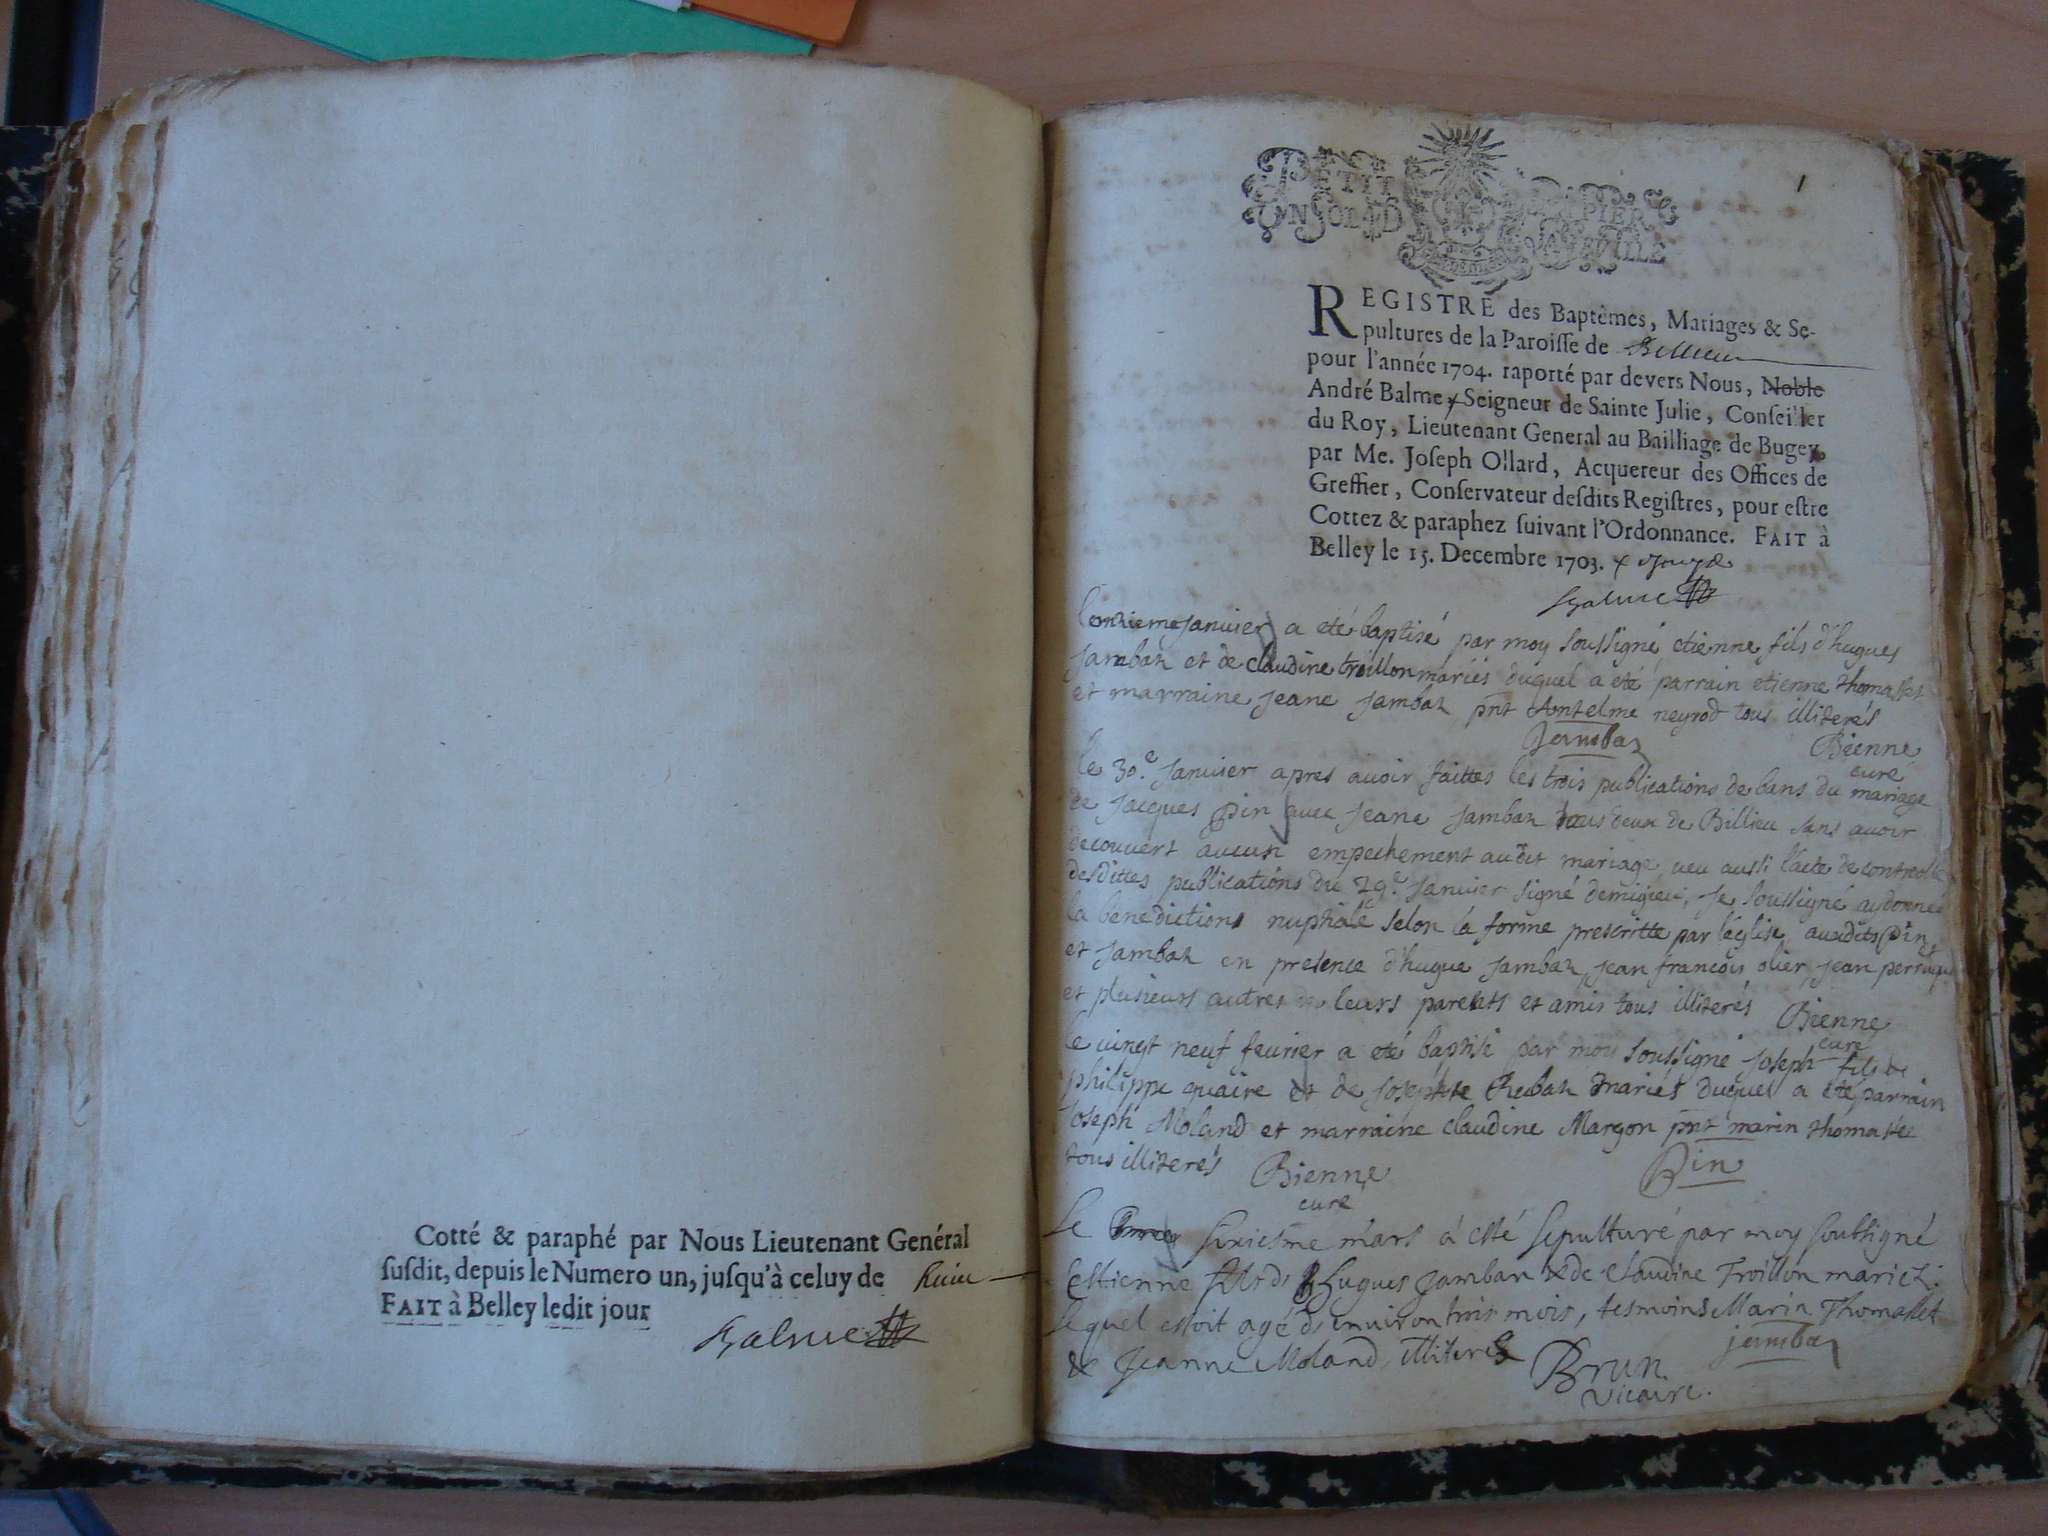 Cotté & paraphé par Nous Lieutenant Genéral
susdit, depuis le Numero un, jusqu'à celuy de
FAIT à Belley ledit jour
Balme
1
PETIT PAPIER
UN SOL LD LA FEUILLE
REGISTRE des Baptêmes, Mariages & Se-
pultures de la Paroisse de Billieu
pour l'année 1704. raporté par devers Nous, Noble
André Balme, Seigneur de Sainte Julie, Conseiller
du Roy, Lieutenant General au Bailliage de Bugey,
par Me. Joseph Ollard, Acquereur des Offices de
Greffier, Conservateur desdits Registres, pour estre
Cottez & paraphez suivant l'Ordonnance. FAIT à
Belley le 15. Decembre 1703.
Balme
Lonzieme Janvier a eté baptisé par moy soussigné etienne fils d'hugues
Jambaz et de claudine troillon mariés duquel a eté parrain etienne thomasset
et marraine Jeane Jambaz pnt Antelme neyrod tous illiterés
Jambaz Bienne
curé
le 30.e Janvier apres avoir faittes les trois publications de bans du mariage
de Jacques pin avec Jeane Jambaz tous deux de Billieu sans avoir
decouvert aucun empechement audit mariage, veu aussi l'acte de controolle
desdittes publications du 29.e Janvier signé demigieu, Je soussigné ay donné
la bénédiction nuptiale selon la forme prescritte par l'église auxdits pin
et Jambaz en presence d'hugue Jambaz, jean françois olier, jean perruquet
et plusieurs autres de leurs parents et amis tous illiterés Bienne
curé
le vingt neuf fevrier a eté baptisé par moy soussigné Joseph fils de
philippe quaire et de Josephte Rubaz mariés duquel a eté parrain
Joseph Moland et marraine claudine Margon pnt marin thomasset
tous illiterés Bienne Pin
curé
Le sixiesme mars à esté sepulturé par moy soubsigné
Estienne fils d' Hugues Jamban & de Claudine Troillon mariez.
lequel estoit agé d'environ trois mois, tesmoins Marin Thomasset
& Jeanne Moland, illiterés Brun jamba
vicaire.